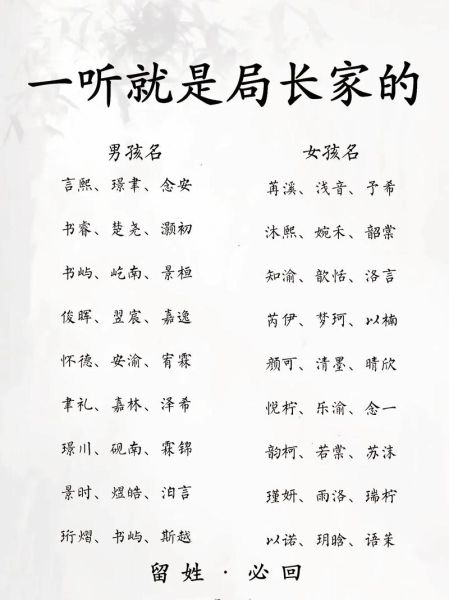 一听就是局长家的
男孩名
言熙、璟聿、念安
书睿、楚尧、灏初
书屿、屹南、景桓
俊晖、翌宸、嘉逸
怀德、安渝、宥霖
聿礼、嘉林、泽希
璟川、砚南、霖锦
景时、煜皓、泊言
珩熠、书屿、斯越
女孩名
苒溪、浅音、予希
沐熙、婉禾、韶棠
知渝、歆恬、洛言
芮伊、梦珂、以楠
颜可、清墨、晴欣
悦柠、乐渝、念一
韵柯、若棠、苏沫
瑾妍、雨洛、瑞柠
以诺、玥晗、语茉
留姓·必回